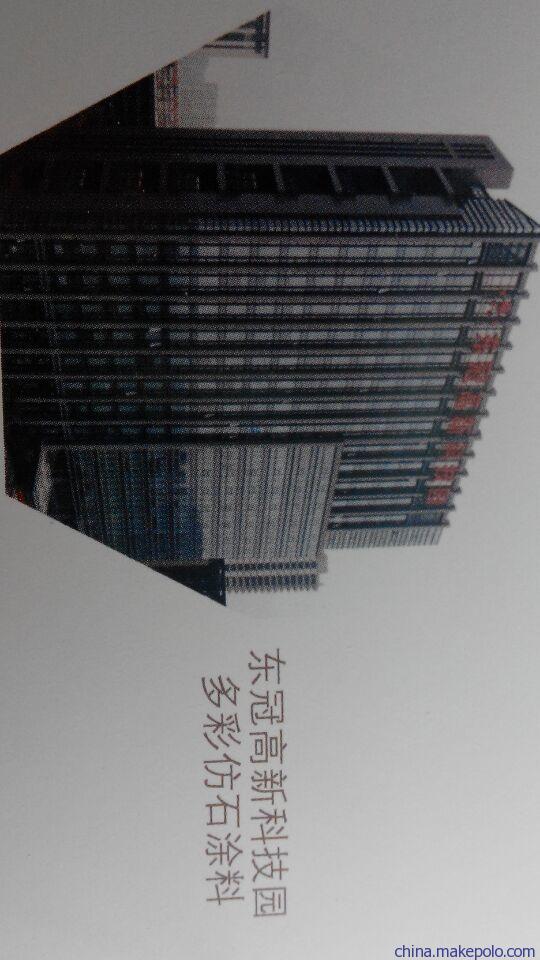 东冠高新科技园
多彩仿石涂料
china.makepolo.com